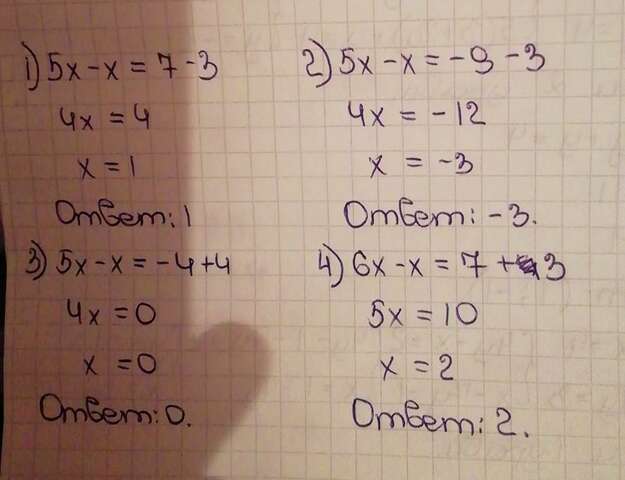 1) 5x-x = 7-3
4x = 4
x = 1
Ответ: 1
2) 5x-x = -9-3
4x = -12
x = -3
Ответ: -3.
3) 5x-x = -4+4
4x = 0
x = 0
Ответ: 0.
4) 6x-x = 7+3
5x = 10
x = 2
Ответ: 2.